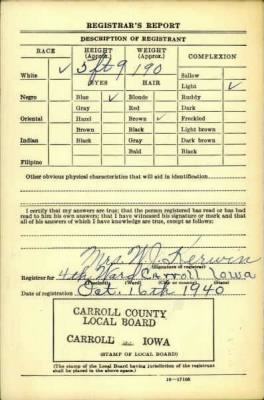 REGISTRAR'S REPORT
DESCRIPTION OF REGISTRANT
RACE HEIGHT (Approx.) WEIGHT (Approx.) COMPLEXION
White ✓ 5 ft 9 190 Sallow
EYES HAIR Light ✓
Negro Blue ✓ Blonde Ruddy
Gray Red Dark
Oriental Hazel Brown ✓ Freckled
Brown Black Light brown
Indian Black Gray Dark brown
Bald Black
Filipino
Other obvious physical characteristics that will aid in identification
I certify that my answers are true; that the person registered has read or has had
read to him his own answers; that I have witnessed his signature or mark and that
all of his answers of which I have knowledge are true, except as follows:
Mrs. W. J. Kerwin
(Signature of registrar)
Registrar for 4th Ward Carroll Iowa
(Precinct) (Ward) (City or county) (State)
Date of registration Oct. 16th 1940
CARROLL COUNTY
LOCAL BOARD
CARROLL IOWA
(STAMP OF LOCAL BOARD)
(The stamp of the Local Board having jurisdiction of the registrant
shall be placed in the above space.)
16—17105